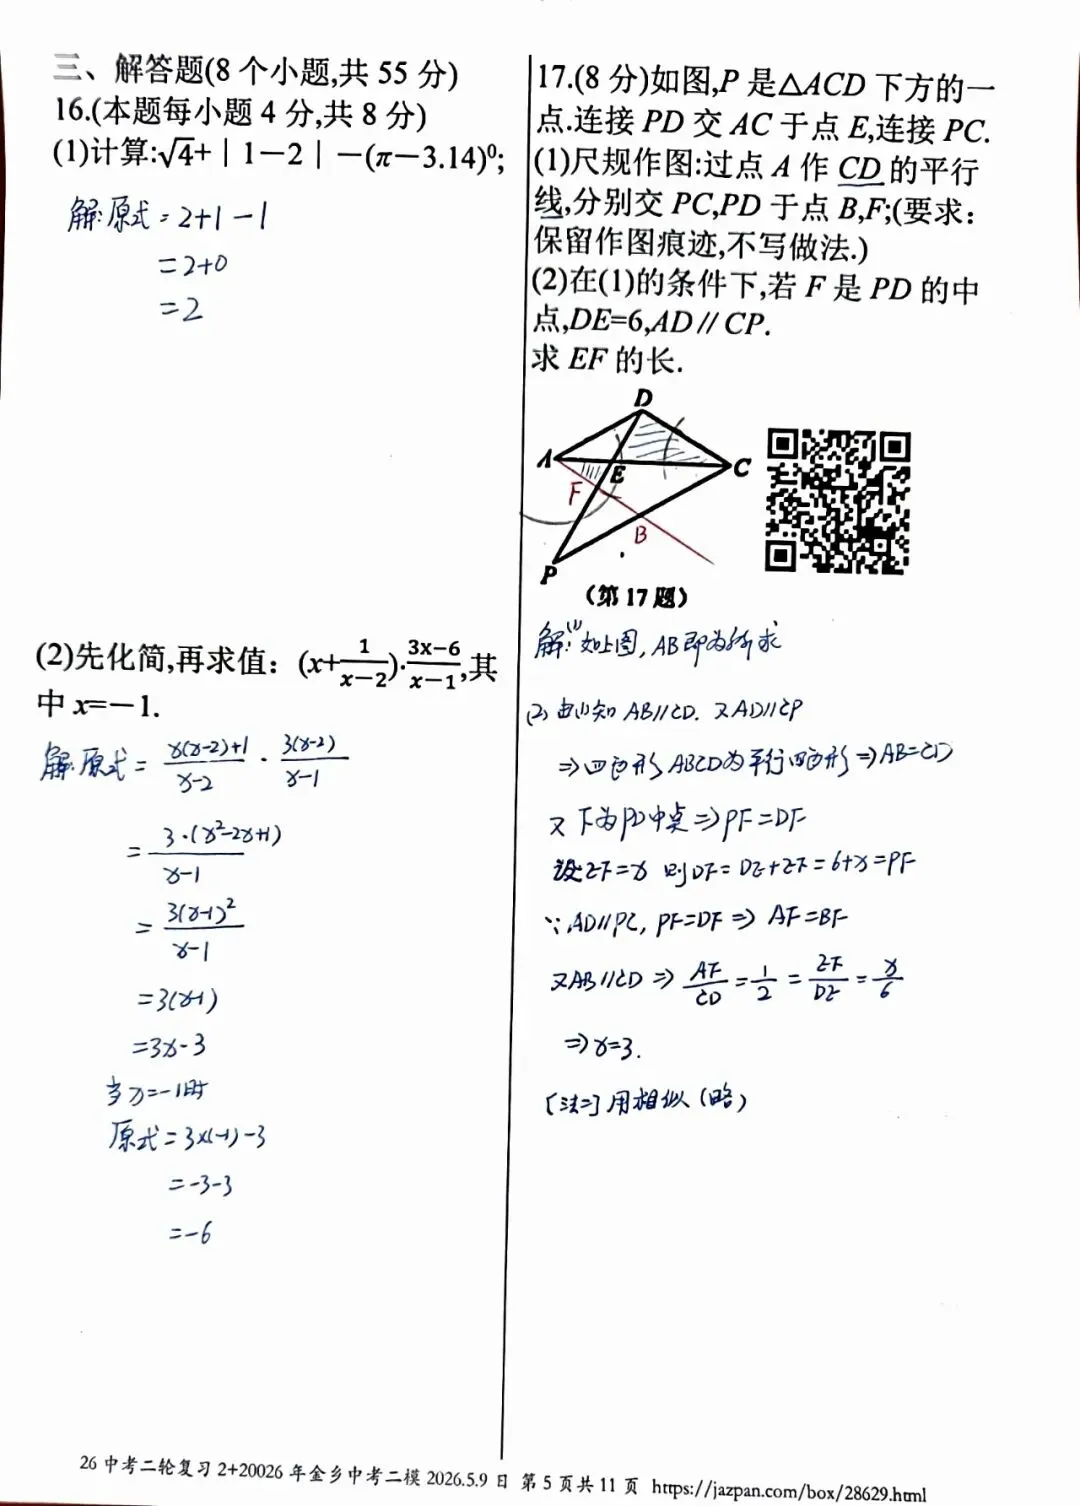 三、解答题(8个小题,共55分)
16.(本题每小题4分,共8分)
(1)计算:√4+|1-2|-(π-3.14)⁰;
解:原式=2+1-1
=2+0
=2
(2)先化简,再求值:(x+1/(x-2))·(3x-6)/(x-1),其
中x=-1.
解:原式=(x(x-2)+1)/(x-2)·3(x-2)/(x-1)
=3·(x²-2x+1)/(x-1)
=3(x-1)²/(x-1)
=3(x-1)
=3x-3
当x=-1时
原式=3×(-1)-3
=-3-3
=-6
17.(8分)如图,P是△ACD下方的一
点.连接PD交AC于点E,连接PC.
(1)尺规作图:过点A作CD的平行
线,分别交PC,PD于点B,F;(要求:
保留作图痕迹,不写做法.)
(2)在(1)的条件下,若F是PD的中
点,DE=6,AD∥CP.
求EF的长.
D
A
E
C
F
B
P
(第17题)
解:(1)如上图,AB即为所求
(2)由(1)知AB//CD.又AD//CP
⇒四边形ABCD为平行四边形⇒AB=CD
又F为PD中点⇒PF=DF
设EF=x 则DF=DE+EF=6+x=PF
∵AD//PC,PF=DF⇒AF=BF
又AB//CD⇒AF/CD=1/2=EF/DE=x/6
⇒x=3.
[法二]用相似(略)
26中考二轮复习2+20026年金乡中考二模2026.5.9日 第5页共11页 https://jazpan.com/box/28629.html